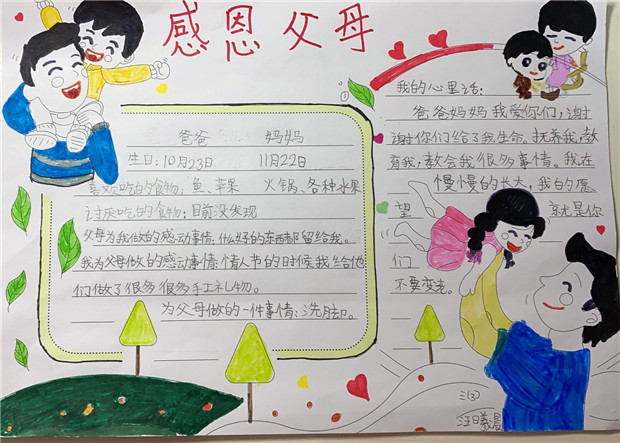 感恩父母
爸爸 妈妈
生日:10月23日 11月22日
喜欢吃的食物:鱼、苹果 火锅、各种水果
讨厌吃的食物:目前没发现
父母为我做的感动事情:什么好的东西都留给我。
我为父母做的感动事情:情人节的时候我给他
们做了很多很多手工礼物。
为父母做的一件事情:洗脚。
我的心里话:
爸爸妈妈我爱你们,谢
谢你们给了我生命。抚养我,教
育我,教会我很多事情。我在
慢慢的长大,我的愿
望 就是你
们
不要变老。
三(3)
汪日羲晨